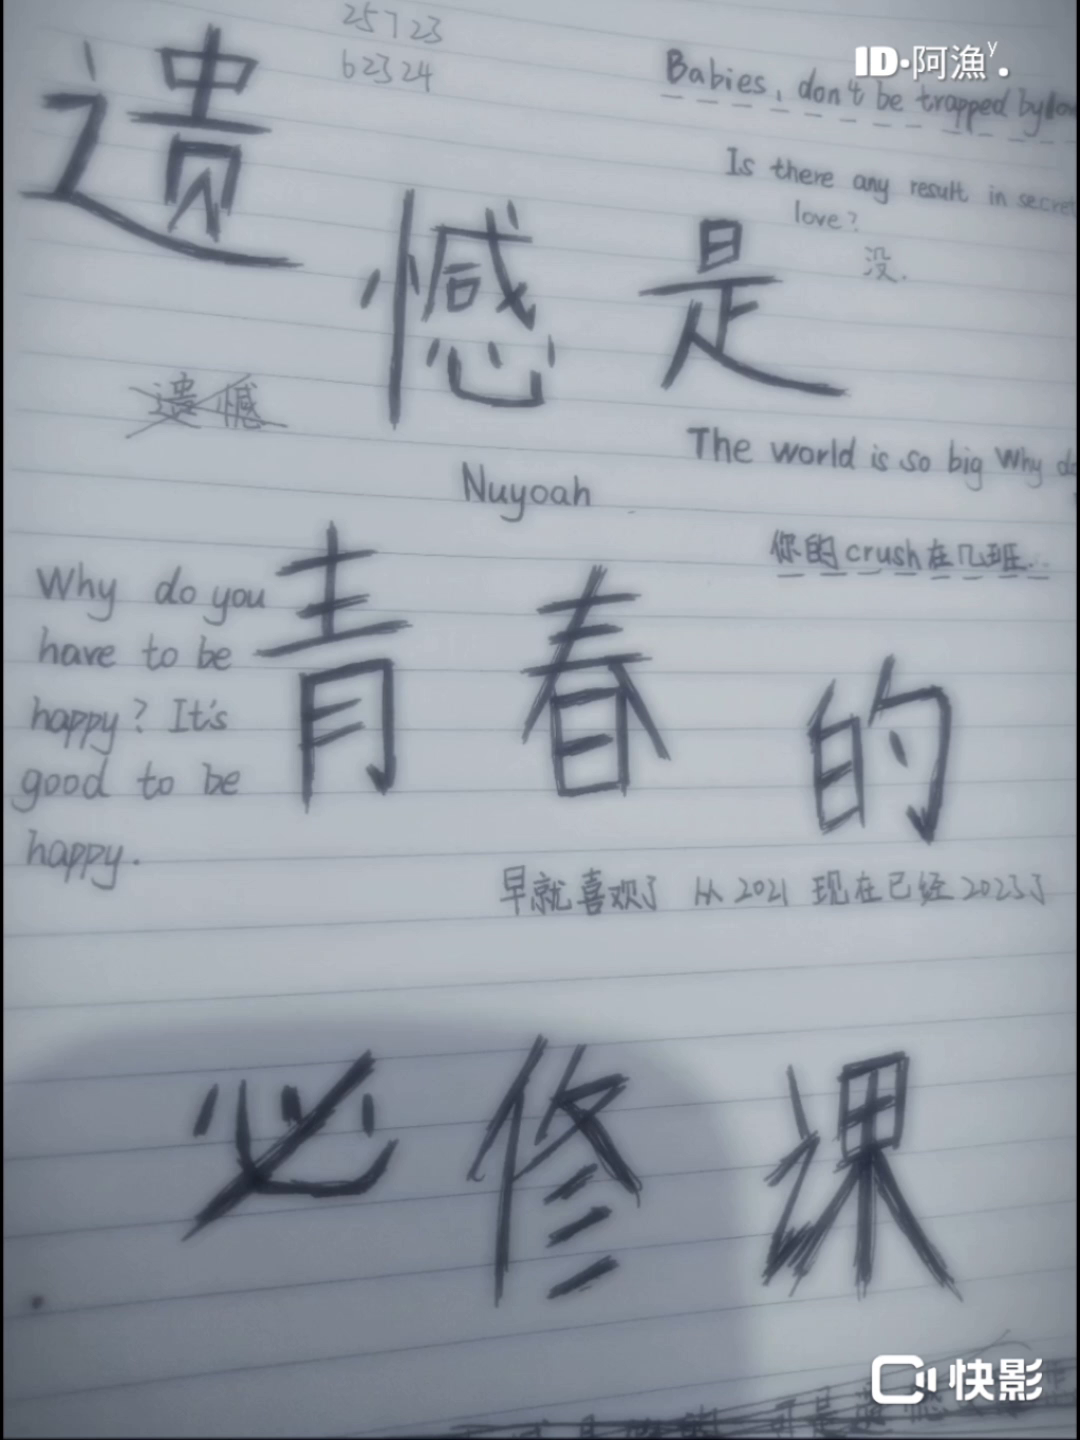 25723
62324
ID·阿漁y.
Babies, don't be trapped by
Is there any result in secret
love?
没.
遗憾是
遗憾
The world is so big Why do
Nuyoah
你的crush在几班...
Why do you
have to be
happy? It's
good to be
happy.
青春的
早就喜欢了 从2021 现在已经2023了
必修课
快影